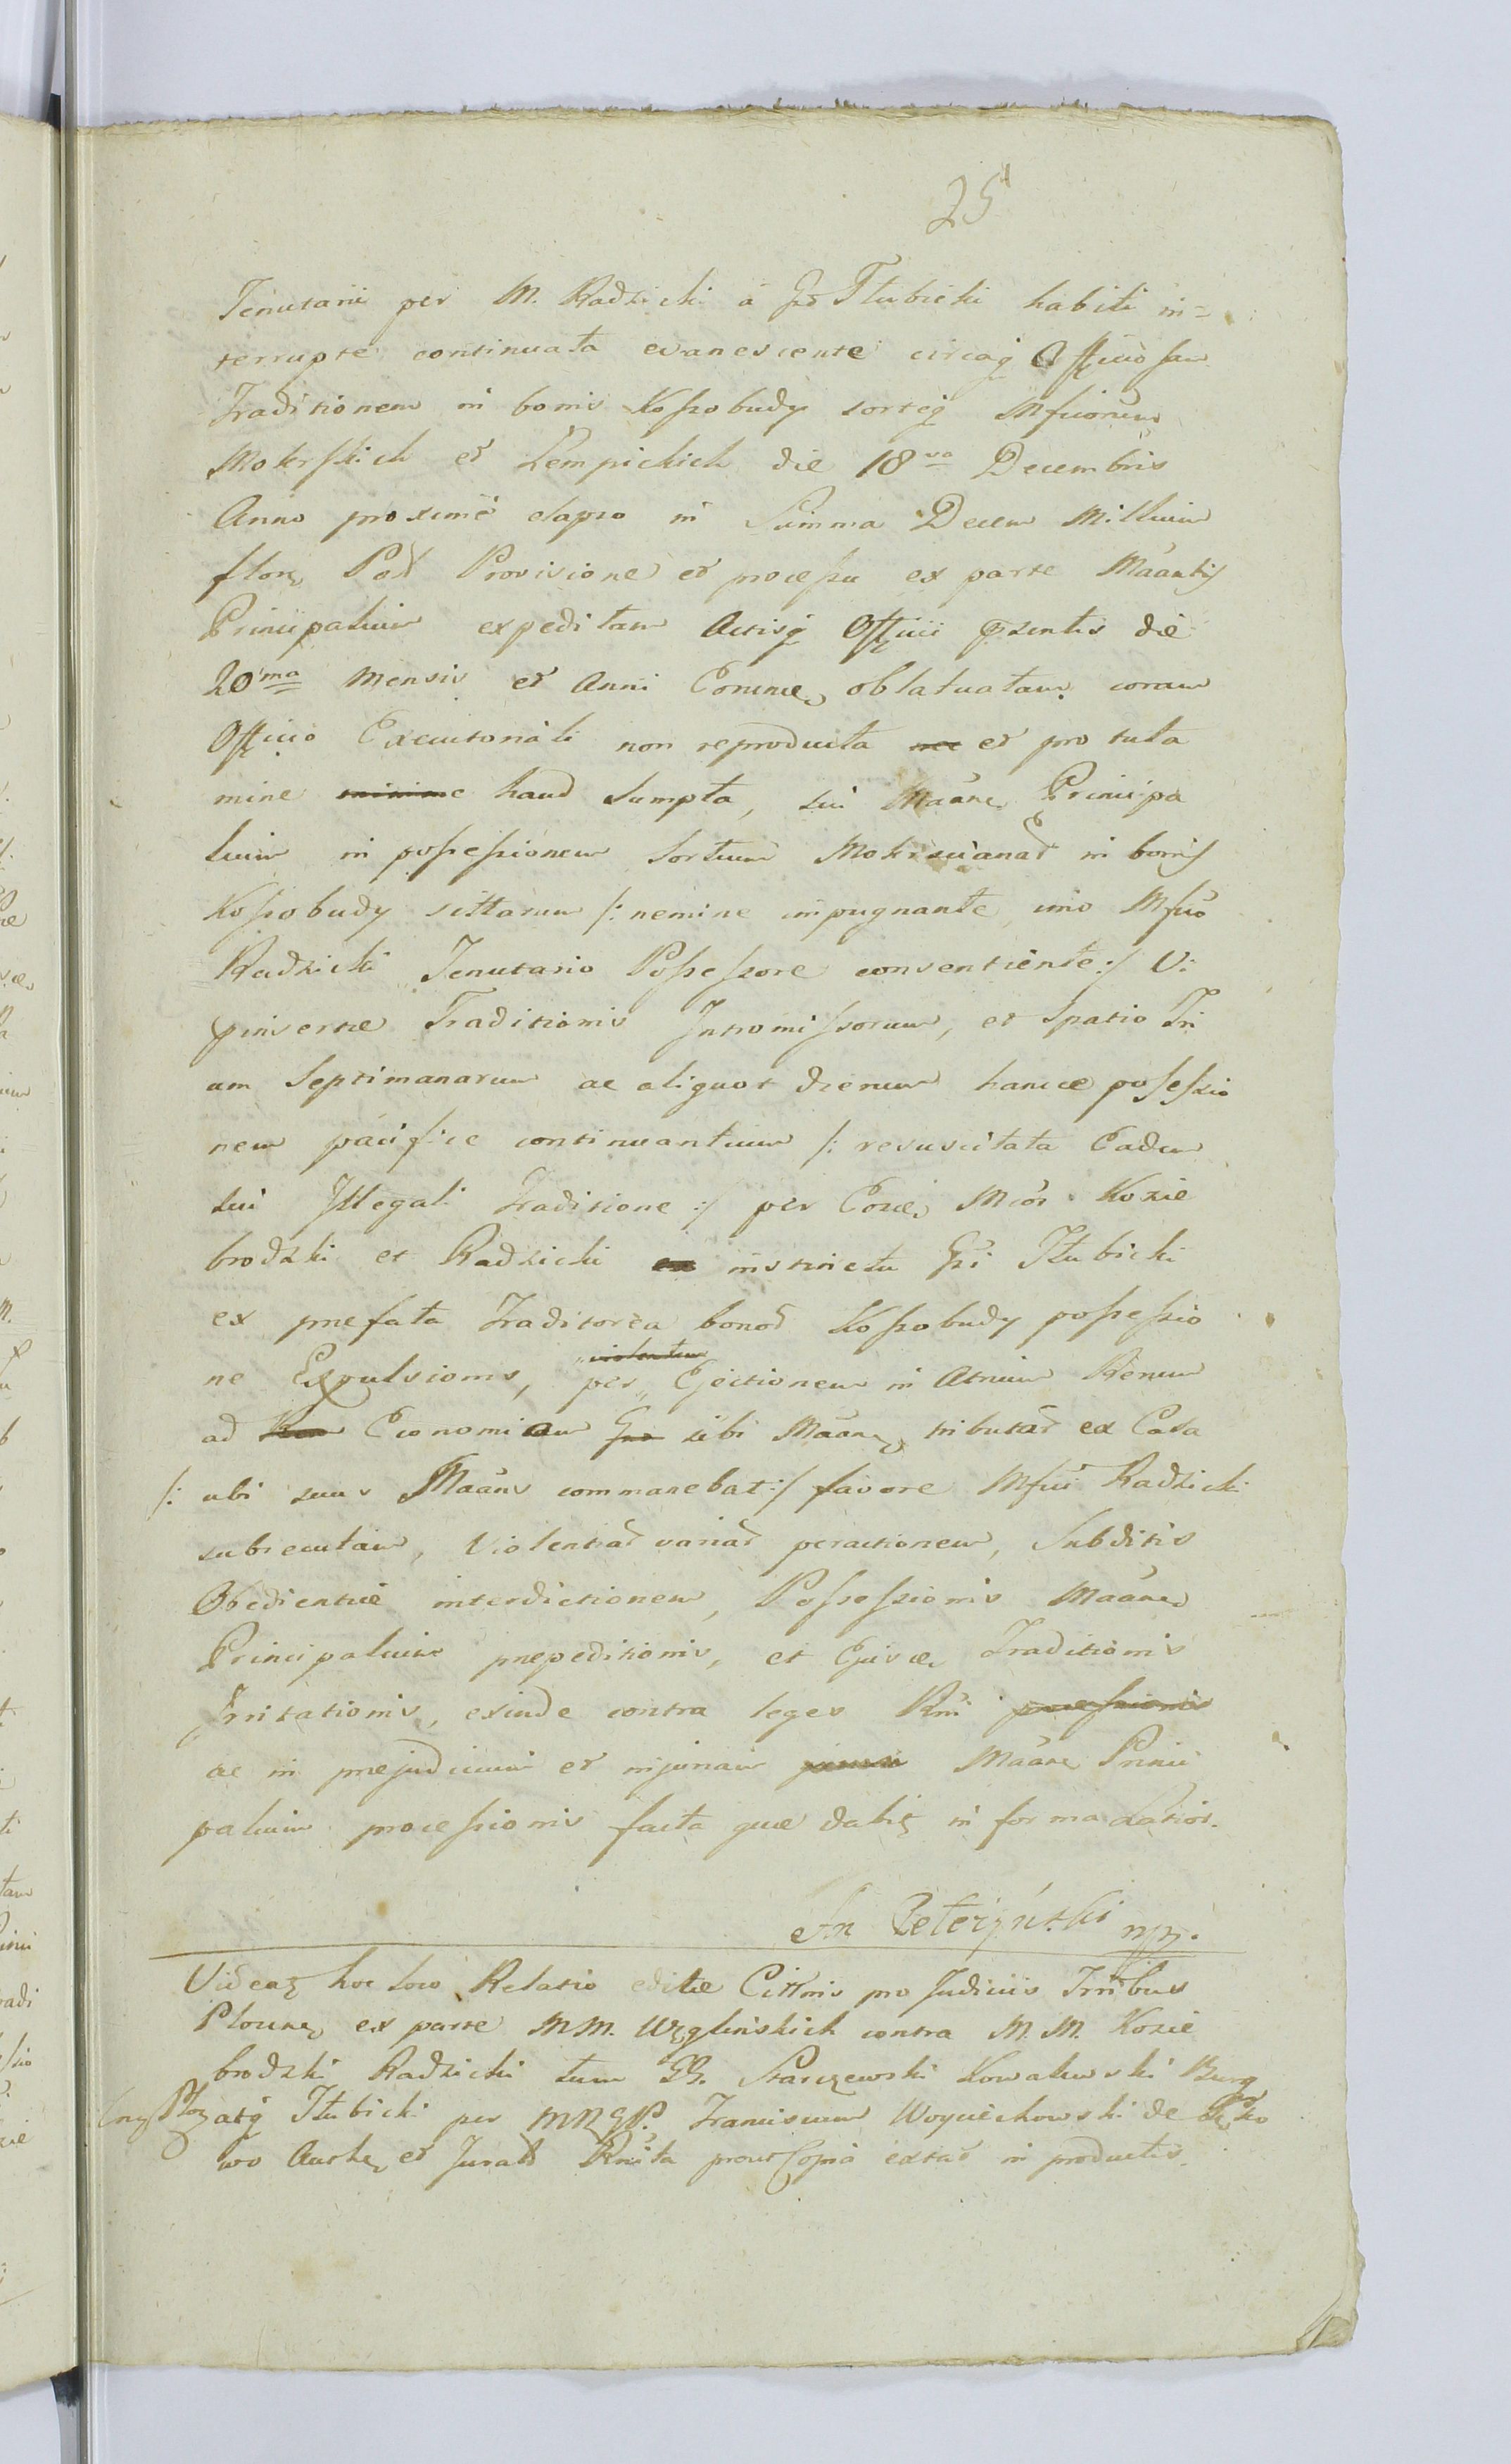 25
Tenutarii per M. Radzicki a Gd Tłubicki habiti in=
terrupte continuata evanescente circaq Officiosam
Traditionem in bonis Kossobudy sorteq Mficorum
Mokrskich et Lempickich die 18va Decembris
Anno proxime elapso in Summa Decem Millium
flor Pol Provisione et processu ex parte Maantis
Principalium expeditam Actisq Officii pntis die
20ma Mensis et Anni Eorume oblatuatam coram
Officio Executoriali non reproducta et pro tuta
mine haud Sumpta, sui Maane Principa
lium in possessionem Sortium Mokrscianar in bonis
Kossobudy sittarum /: nemine impugnante imo Mfico
Radzicki Tenutario Possessore consentiente :/ Vi
Traditionis Intromissorum, et Spatio Tri
um Septimanarum ac aliquot dierum hancce possessio
nem pacifice continuantium /: resuscitata Eadem
sui Illegali Traditione :/ per Eosce Mcos Kozie
brodzki et Radzicki instinctu Gsi Tłubicki
ex pnefata Traditorea bonor Kossobudy possessio
ne Expulsionis, per Ejectionem in Atrium Rerum
ad Economiam sibi Maane tributar ex Casa
/: ubi suus Maans commanebat :/ favore Mfici Radzicki
subsecutam, Violentiar variar peractionem, Subditis
Obedientiae interdictionem, Possessionis Maane
Principalium pnepeditionis, et Ejusce Traditionis
Irritationis, exinde contra leges Rni
ac in pnejudicium et injuriam Maane Princi
palium processionis facta quae dabit in forma Latior.
An Peterzynski mp.
Videat hoc loco Relatio editae Cittnis pro Judiciis Trribus
Plocne ex parte MM. Węglińskich contra M. M. Kozie
brodzki Radzicki tum GG. Starczewski Kowalewski Burg
atq Tłubicki per MNGP. Franciscum Woyciechowski de
wo Auth et Jurat Rnita prout Copia extat in productis.